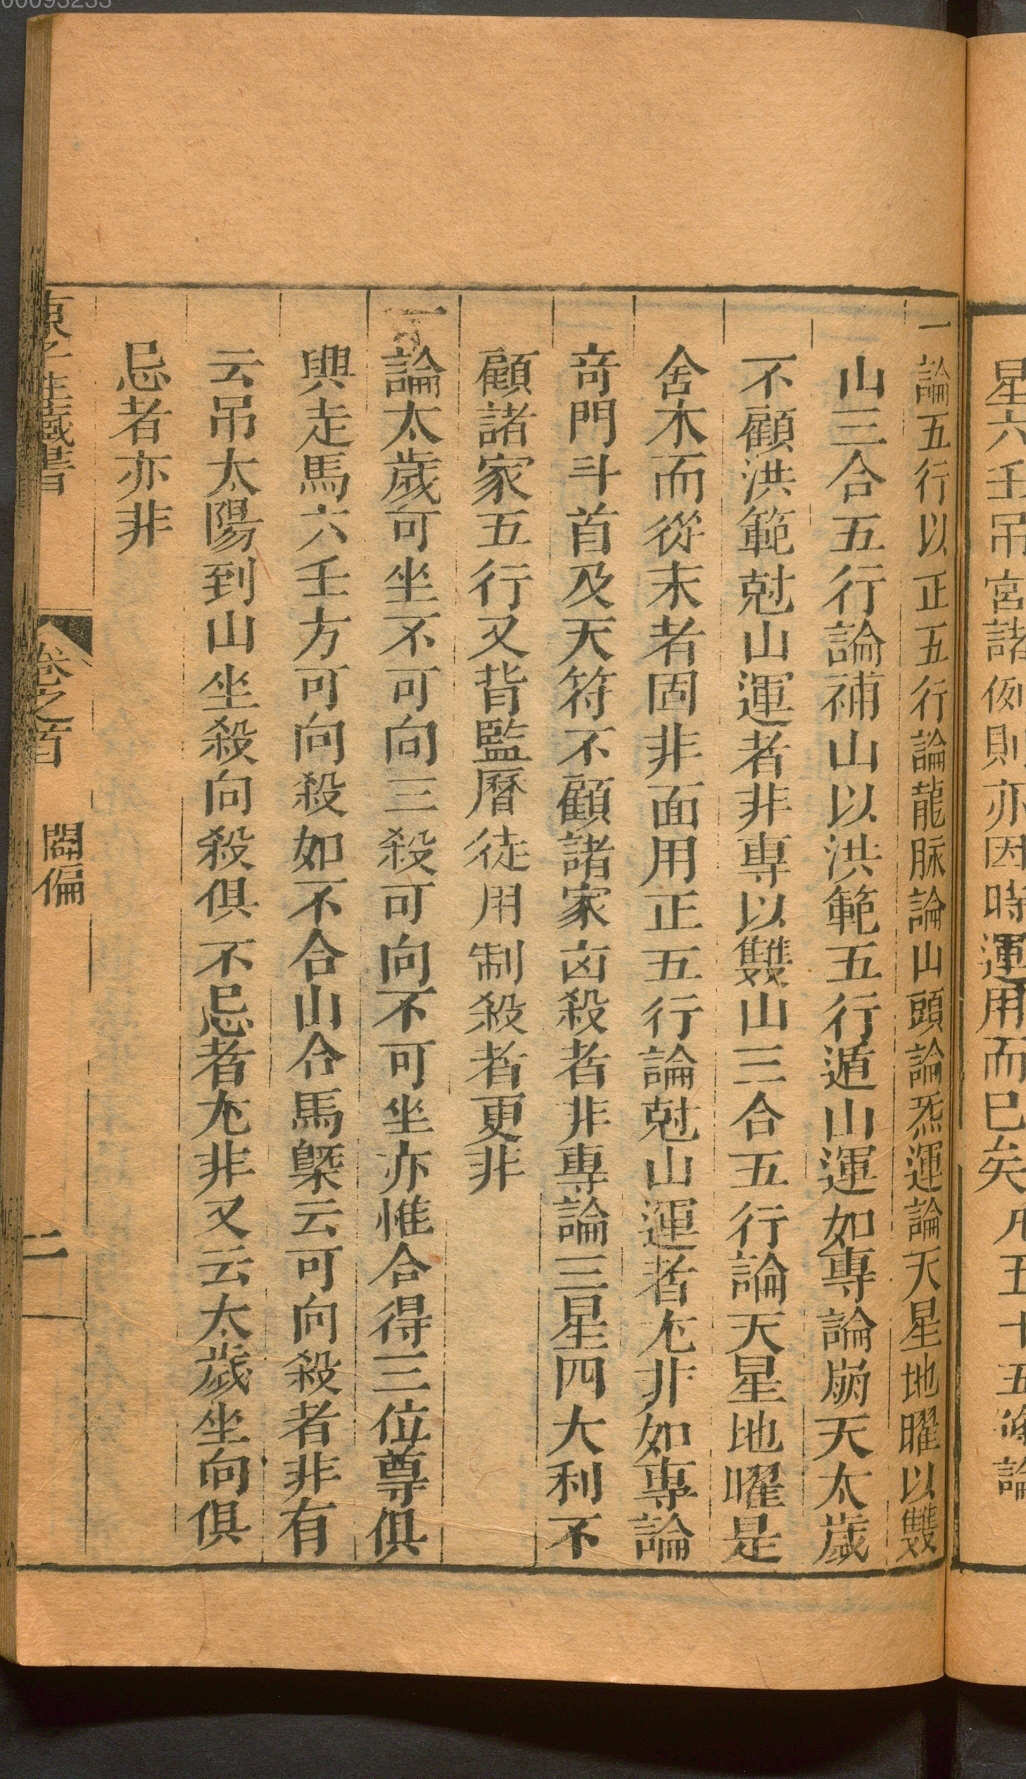 星六壬吊宮諸例則亦因時運用而已矣凡五十五條論
一論五行以正五行論龍脉論山頭論炁運論天星地曜以雙
山三合五行論補山以洪範五行遁山運如專論崩天太歲
不顧洪範尅山運者非專以雙山三合五行論天星地曜是
舍本而從末者固非面用正五行論尅山運者尤非如專論
竒門斗首及天符不顧諸家凶殺者非專論三星四大利不
顧諸家五行又背監曆徒用制殺者更非
一論太歲可坐不可向三殺可向不可坐亦惟合得三位尊俱
興走馬六壬方可向殺如不合山合馬槩云可向殺者非有
云吊太陽到山坐殺向殺俱不忌者尤非又云太歲坐向俱
忌者亦非
藏書
卷之首
闢偏
二
00093233